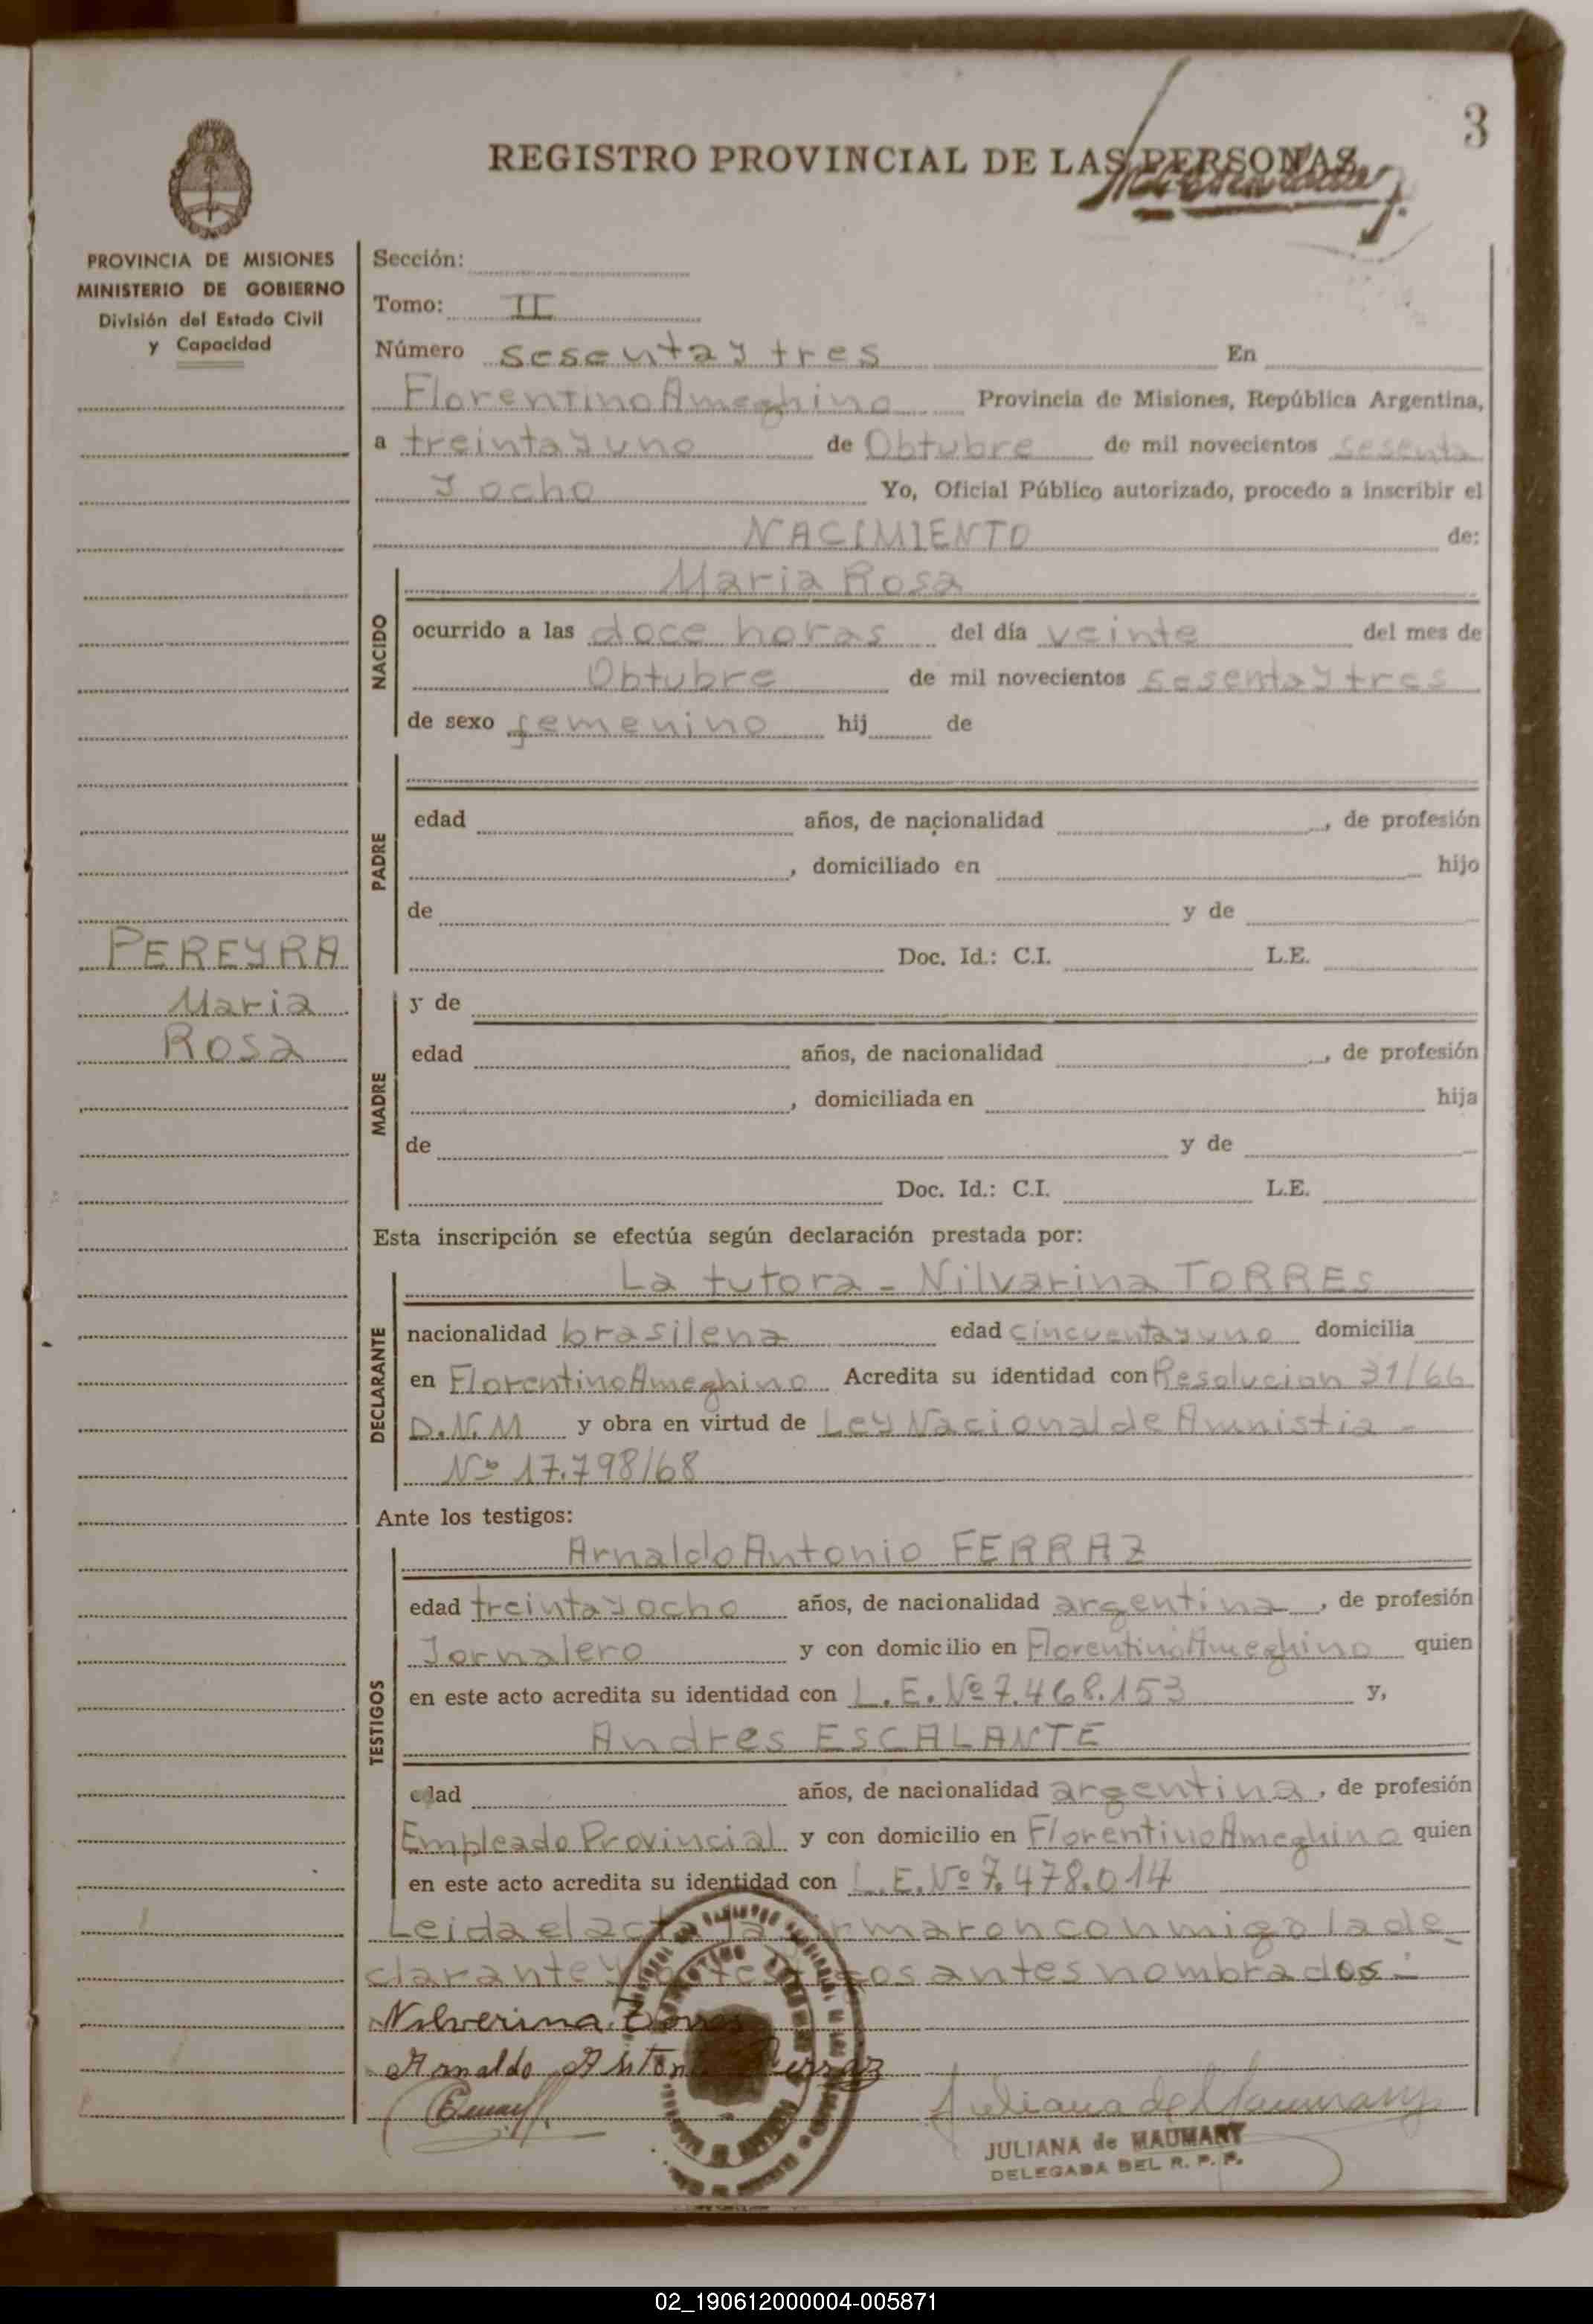 3
REGISTRO PROVINCIAL DE LAS PERSONAS
PROVINCIA DE MISIONES
MINISTERIO DE GOBIERNO
División del Estado Civil
y Capacidad
Sección:
Tomo: II
Número sesenta y tres En
Florentino Ameghino Provincia de Misiones, República Argentina,
a treinta y uno de Obtubre de mil novecientos sesenta
y ocho Yo, Oficial Público autorizado, procedo a inscribir el
NACIMIENTO de:
NACIDO
Maria Rosa
ocurrido a las doce horas del día veinte del mes de
Obtubre de mil novecientos sesenta y tres
de sexo femenino hij de
PADRE
edad años, de nacionalidad , de profesión
, domiciliado en hijo
de y de
Doc. Id.: C.I. L.E.
PEREYRA
Maria
Rosa
MADRE
y de
edad años, de nacionalidad , de profesión
, domiciliada en hija
de y de
Doc. Id.: C.I. L.E.
Esta inscripción se efectúa según declaración prestada por:
DECLARANTE
La tutora - Nilvarina TORRES
nacionalidad brasilena edad cincuenta y uno domicilia
en Florentino Ameghino Acredita su identidad con Resolucion 31/66
D.N.M y obra en virtud de Ley Nacional de Amnistia -
Nº 17.798/68
Ante los testigos:
TESTIGOS
Arnaldo Antonio FERRAZ
edad treinta y ocho años, de nacionalidad argentina, de profesión
Jornalero y con domicilio en Florentino Ameghino quien
en este acto acredita su identidad con L.E. Nº 7.468.153 y,
Andres ESCALANTE
edad años, de nacionalidad argentina, de profesión
Empleado Provincial y con domicilio en Florentino Ameghino quien
en este acto acredita su identidad con L.E. Nº 7.478.014
Leida el acta la firmaron conmigo la de_
clarante y testigos antes nombrados -
Nilverina Torres
Arnaldo Antonio Ferraz
Juliana de Maumary
JULIANA de MAUMARY
DELEGADA DEL R. P. P.
02_190612000004-005871